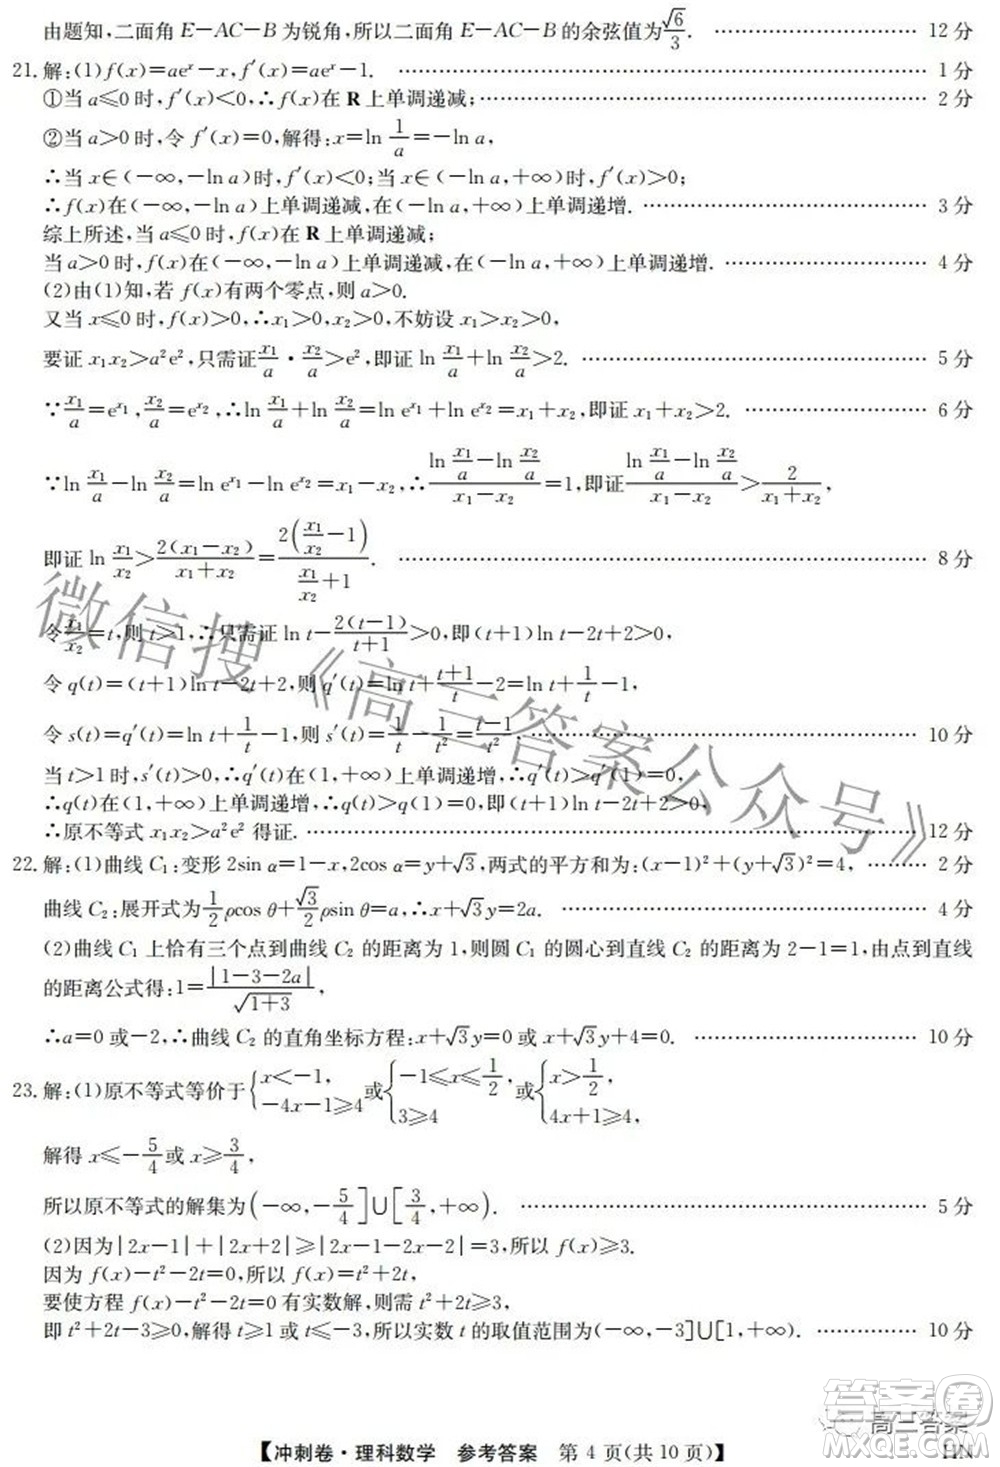 由题知,二面角 E-AC-B 为锐角,所以二面角 E-AC-B 的余弦值为√6/3. …… 12 分
21.解:(1)f(x)=aeˣ-x,f′(x)=aeˣ-1. …… 1 分
①当 a≤0 时,f′(x)<0,∴f(x)在 R 上单调递减;…… 2 分
②当 a>0 时,令 f′(x)=0,解得:x=ln 1/a=-ln a,
∴当 x∈(-∞,-ln a)时,f′(x)<0;当 x∈(-ln a,+∞)时,f′(x)>0;
∴f(x)在(-∞,-ln a)上单调递减,在(-ln a,+∞)上单调递增. …… 3 分
综上所述,当 a≤0 时,f(x)在 R 上单调递减;
当 a>0 时,f(x)在(-∞,-ln a)上单调递减,在(-ln a,+∞)上单调递增. …… 4 分
(2)由(1)知,若 f(x)有两个零点,则 a>0.
又当 x≤0 时,f(x)>0,∴x₁>0,x₂>0,不妨设 x₁>x₂>0,
要证 x₁x₂>a²e²,只需证 x₁/a · x₂/a>e²,即证 ln x₁/a+ln x₂/a>2. …… 5 分
∵x₁/a=e^x₁,x₂/a=e^x₂,∴ln x₁/a+ln x₂/a=ln e^x₁+ln e^x₂=x₁+x₂,即证 x₁+x₂>2. …… 6 分
∵ln x₁/a-ln x₂/a=ln e^x₁-ln e^x₂=x₁-x₂,∴(ln x₁/a-ln x₂/a)/(x₁-x₂)=1,即证(ln x₁/a-ln x₂/a)/(x₁-x₂)>2/(x₁+x₂),
即证 ln x₁/x₂>2(x₁-x₂)/(x₁+x₂)=2(x₁/x₂-1)/(x₁/x₂+1). …… 8 分
令x₁/x₂=t,则 t>1,∴只需证 ln t-2(t-1)/(t+1)>0,即(t+1)ln t-2t+2>0,
令 q(t)=(t+1)ln t-2t+2,则 q′(t)=ln t+(t+1)/t-2=ln t+1/t-1,
令 s(t)=q′(t)=ln t+1/t-1,则 s′(t)=1/t-1/t²=(t-1)/t²,…… 10 分
当 t>1 时,s′(t)>0,∴q′(t)在(1,+∞)上单调递增,∴q′(t)>q′(1)=0,
∴q(t)在(1,+∞)上单调递增,∴q(t)>q(1)=0,即(t+1)ln t-2t+2>0,
∴原不等式 x₁x₂>a²e² 得证. …… 12 分
22.解:(1)曲线 C₁:变形 2sin α=1-x,2cos α=y+√3,两式的平方和为:(x-1)²+(y+√3)²=4, …… 2 分
曲线 C₂:展开式为 1/2 ρcos θ+√3/2 ρsin θ=a,∴x+√3y=2a. …… 4 分
(2)曲线 C₁ 上恰有三个点到曲线 C₂ 的距离为 1,则圆 C₁ 的圆心到直线 C₂ 的距离为 2-1=1,由点到直线
的距离公式得:1=|1-3-2a|/√(1+3),
∴a=0 或-2,∴曲线 C₂ 的直角坐标方程:x+√3y=0 或 x+√3y+4=0. …… 10 分
23.解:(1)原不等式等价于{x<-1, -4x-1≥4 或{-1≤x≤1/2, 3≥4 或{x>1/2, 4x+1≥4,
解得 x≤-5/4 或 x≥3/4,
所以原不等式的解集为(-∞,-5/4]∪[3/4,+∞). …… 5 分
(2)因为|2x-1|+|2x+2|≥|2x-1-2x-2|=3,所以 f(x)≥3.
因为 f(x)-t²-2t=0,所以 f(x)=t²+2t,
要使方程 f(x)-t²-2t=0 有实数解,则需 t²+2t≥3,
即 t²+2t-3≥0,解得 t≥1 或 t≤-3,所以实数 t 的取值范围为(-∞,-3]∪[1,+∞). …… 10 分
【冲刺卷·理科数学 参考答案 第 4 页(共 10 页)】 HN
微信搜《高三答案公众号》
高三答案
答案圈
MXQE.COM